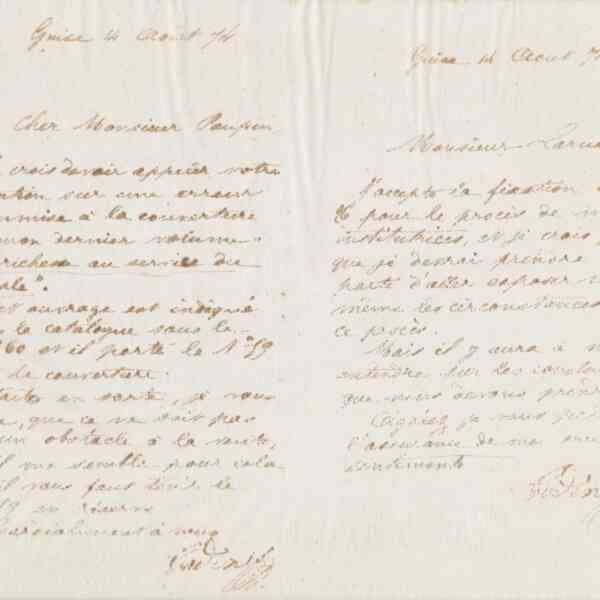 Guise 4 Août 74
Cher Monsieur
crois devoir appeler votre
sur une erreur
à la couverture
mon dernier volume.
richesse au service du
ouvrage est indiqué
le catalogue sous le
60 et il porte le N° 59
de couverture.
en sorte, je vous
que ce ne soit pas
un obstacle à la vente,
il me semble pour cela
il vous faut tenir le
59 en
à vous
Guise 14 Août 7
Monsieur
J'accepte la fixation
6 pour le procès de m
institutrices, et je crois
que je devrai prendre
d'aller exposer
même les circonstances
ce procès.
Mais il y aura à
entendre sur les
que nous devons
je vous
l'assurance de mes
sentiments